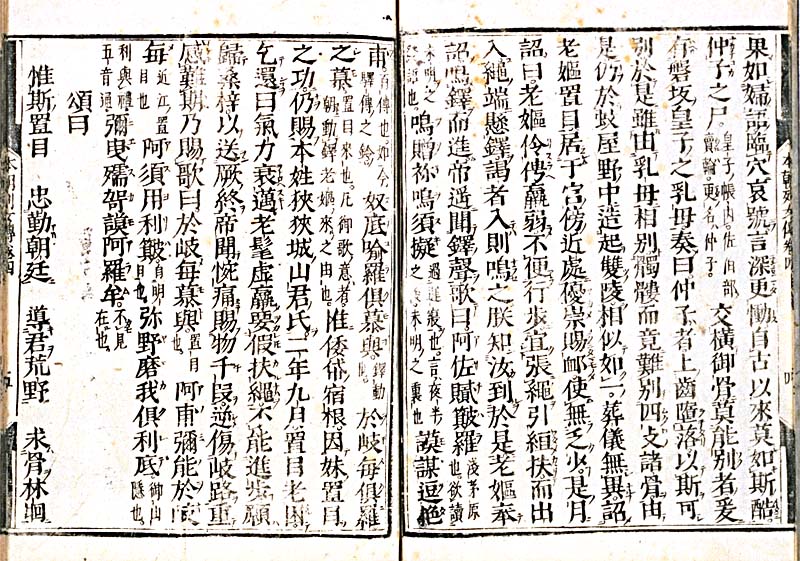 果如婦語臨穴哀號言深更慟自古以來莫如斯酷
仲子之尸皇子帳內佐伯部賣輪更名仲子交橫御骨莫能別者爰
有磐坂皇子之乳母奏曰仲子者上齒墮落以斯可
別於是雖由乳母相別髑髏而竟難別四支諸骨由
是仍於蚊屋野中造起雙陵相似如一葬儀無異詔
老嫗置目居于宮傍近處優崇賜卹使無乏少是月
詔曰老嫗伶俜羸弱不便行步宜張繩引絙扶而出
入繩端懸鐸謁者入則鳴之朕知汝到於是老嫗奉
詔鳴鐸而進帝遙聞鐸聲歌曰阿佐賦簸羅淺茅原也欲讀
鳴贈祢鳴須擬謨謀逗絕
甫奴底喻羅俱慕與鐸動於岐每俱羅
之慕置目來也惟倭帝宿根因妹置目
之功仍賜本姓狹狹城山君氏二年九月置目老困
乞還曰氣力衰邁老髦虛羸要假扶繩不能進步願
歸桑梓以送厥終帝聞惋痛賜物千段逆傷岐路重
感難期乃賜歌曰於岐每慕與置目阿甫彌能於
每近江置目也阿須用利簸自明日也弥野磨我俱利底御山隱也
彌曳孺賀謨阿羅牟不見在也
頌曰
惟斯置目 忠勤朝廷 導君荒野 求骨林坰